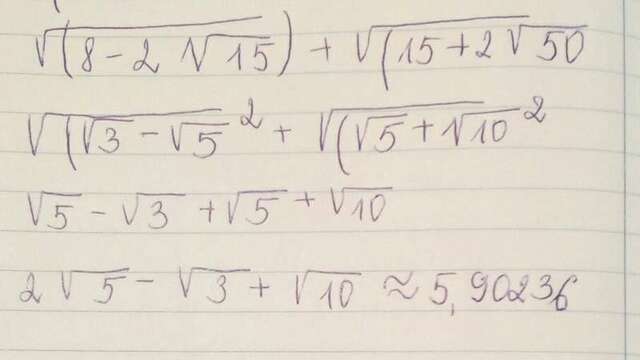 √(8 - 2 √15) + √(15 + 2 √50
√(√3 - √5 ² + √(√5 + √10 ²
√5 - √3 + √5 + √10
2 √5 - √3 + √10 ≈ 5,90236